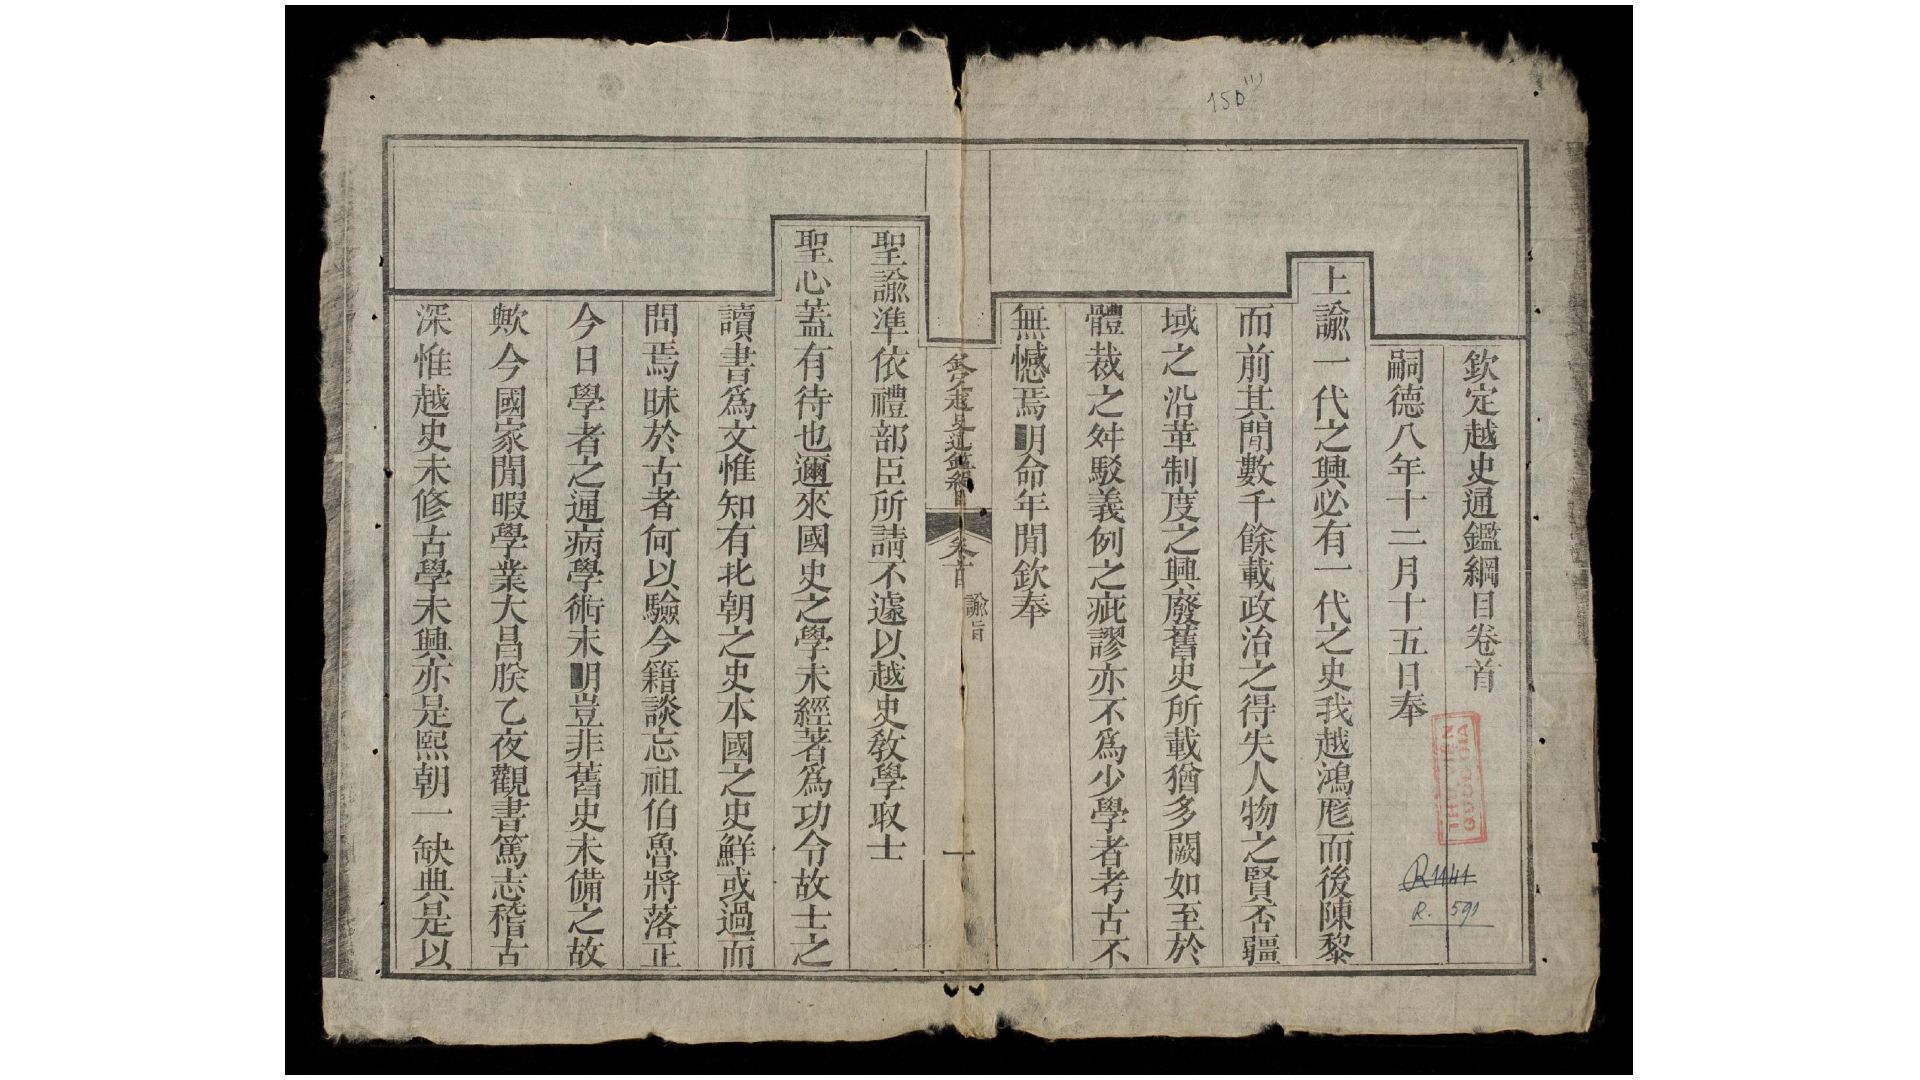 150
欽定越史通鑑綱目卷首
嗣德八年十二月十五日奉
上諭一代之興必有一代之史我越鴻厖而後陳黎
而前其間數千餘載政治之得失人物之賢否疆
域之沿革制度之興廢舊史所載猶多闕如至於
體裁之舛駁義例之疵謬亦不為少學者考古不
無憾焉明命年間欽奉
欽定越史通鑑綱目 卷首 諭旨 一
聖諭準依禮部臣所請不遽以越史敎學取士
聖心蓋有待也邇來國史之學未經著爲功令故士之
讀書爲文惟知有北朝之史本國之史鮮或過而
問焉昧於古者何以驗今籍談忘祖伯魯將落正
今日學者之通病學術未明豈非舊史未備之故
歟今國家閒暇學業大昌朕乙夜觀書篤志稽古
深惟越史未修古學未興亦是熙朝一缺典是以
R1441
R. 591